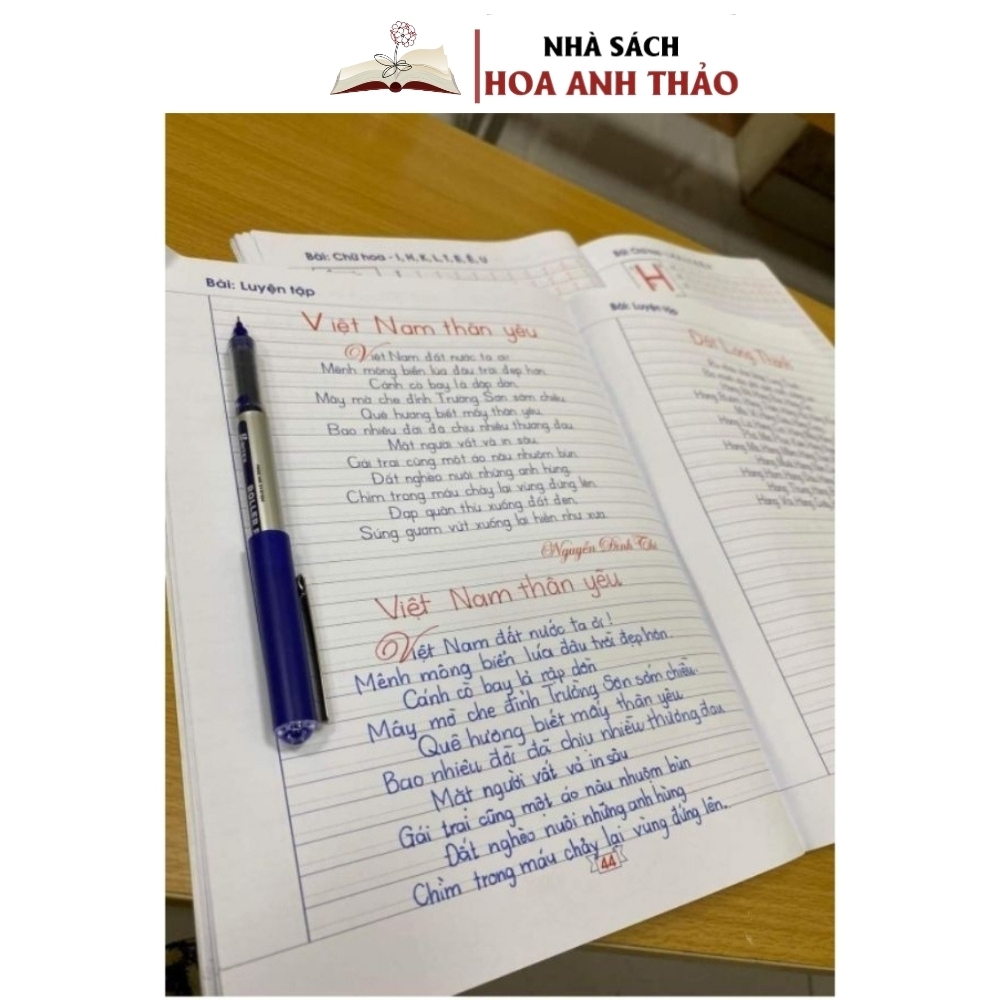 NHÀ SÁCH
HOA ANH THẢO
Bài: Chữ hoa - I, H, K, L, T, E, Ê, U
Bài: Luyện tập
Việt Nam thân yêu
Việt Nam đất nước ta ơi
Mênh mông biển lúa đâu trời đẹp hơn
Cánh cò bay lả dập dờn
Mây mờ che đỉnh Trường Sơn sớm chiều
Quê hương biết mấy thân yêu
Bao nhiêu đời đã chịu nhiều thương đau
Mặt người vất vả in sâu
Gái trai cũng một áo nâu nhuộm bùn
Đất nghèo nuôi những anh hùng
Chìm trong máu chảy lại vùng đứng lên
Đạp quân thù xuống đất đen
Súng gươm vứt xuống lại hiền như xưa
Nguyễn Đình Thi
Việt Nam thân yêu
Việt Nam đất nước ta ơi!
Mênh mông biển lúa đâu trời đẹp hơn.
Cánh cò bay lả rập dờn
Mây mờ che đỉnh Trường Sơn sớm chiều.
Quê hương biết mấy thân yêu
Bao nhiêu đời đã chịu nhiều thương đau
Mặt người vất vả in sâu
Gái trai cũng một áo nâu nhuộm bùn
Đất nghèo nuôi những anh hùng
Chìm trong máu chảy lại vùng đứng lên.
44
ROLLER
H
Bài: Luyện tập
Đất Long Thành